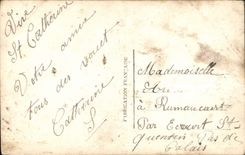 Vive
St. Catherine
Votre amie
tous des voeux
Catherine
S
FABRICATION FRANÇAISE
Mademoiselle
à Rumaucourt
Par Ecourt St
Quentin Pas de
Calais